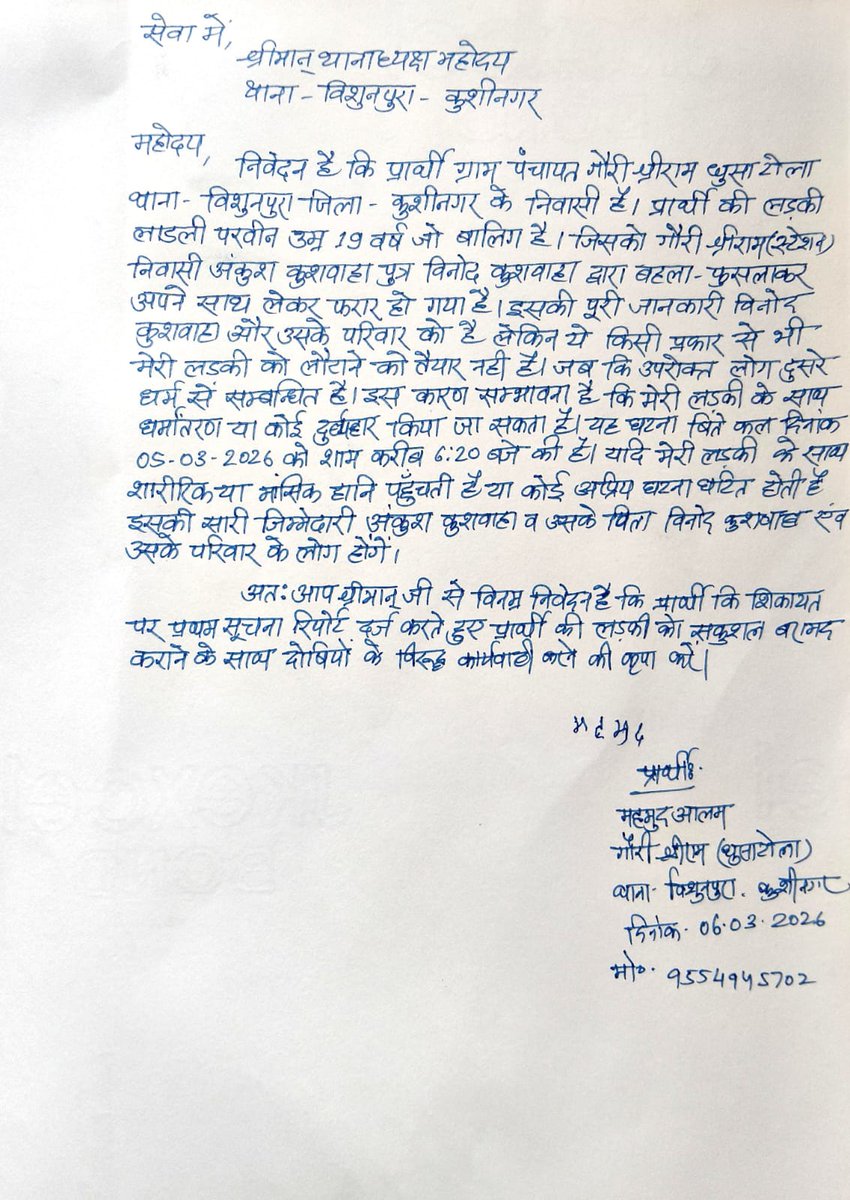 सेवा में,
श्रीमान् थानाध्यक्ष महोदय
थाना - विशुनपुरा - कुशीनगर
महोदय,
निवेदन है कि प्रार्थी ग्राम पंचायत गौरी श्रीराम धुसा टोला
थाना - विशुनपुरा जिला - कुशीनगर के निवासी है। प्रार्थी की लड़की
लाडली परवीन उम्र 19 वर्ष जो बालिग है। जिसको गौरी श्रीराम (स्टेशन)
निवासी अंकुश कुशवाहा पुत्र विनोद कुशवाहा द्वारा बहला - फुसलाकर
अपने साथ लेकर फरार हो गया है। इसकी पूरी जानकारी विनोद
कुशवाहा और उसके परिवार को है लेकिन ये किसी प्रकार से भी
मेरी लड़की को लौटाने को तैयार नही है। जब कि उपरोक्त लोग दुसरे
धर्म से सम्बन्धित है। इस कारण सम्भावना है कि मेरी लड़की के साथ
धर्मांतरण या कोई दुर्व्यहार किया जा सकता है। यह घटना बिते कल दिनांक
05-03-2026 को शाम करीब 6:20 बजे की है। यदि मेरी लड़की के साथ
शारीरिक या मांसिक हानि पहुँचती है या कोई अप्रिय घटना घटित होती है
इसकी सारी जिम्मेदारी अंकुश कुशवाहा व उसके पिता विनोद कुशवाहा एंव
उसके परिवार के लोग होंगें।
अत: आप श्रीमान् जी से विनम्र निवेदन है कि प्रार्थी कि शिकायत
पर प्रथम सूचना रिपोर्ट दर्ज करते हुए प्रार्थी की लड़की को सकुशल बरामद
कराने के साथ दोषियों के विरूद्ध कार्यवाही करने की कृपा करें।
महमुद
प्रार्थी:
महमुद आलम
गौरी श्रीराम (धुसा टोला)
थाना - विशुनपुरा. कुशीनगर
दिनांक. 06.03.2026
मो०. 9554945702